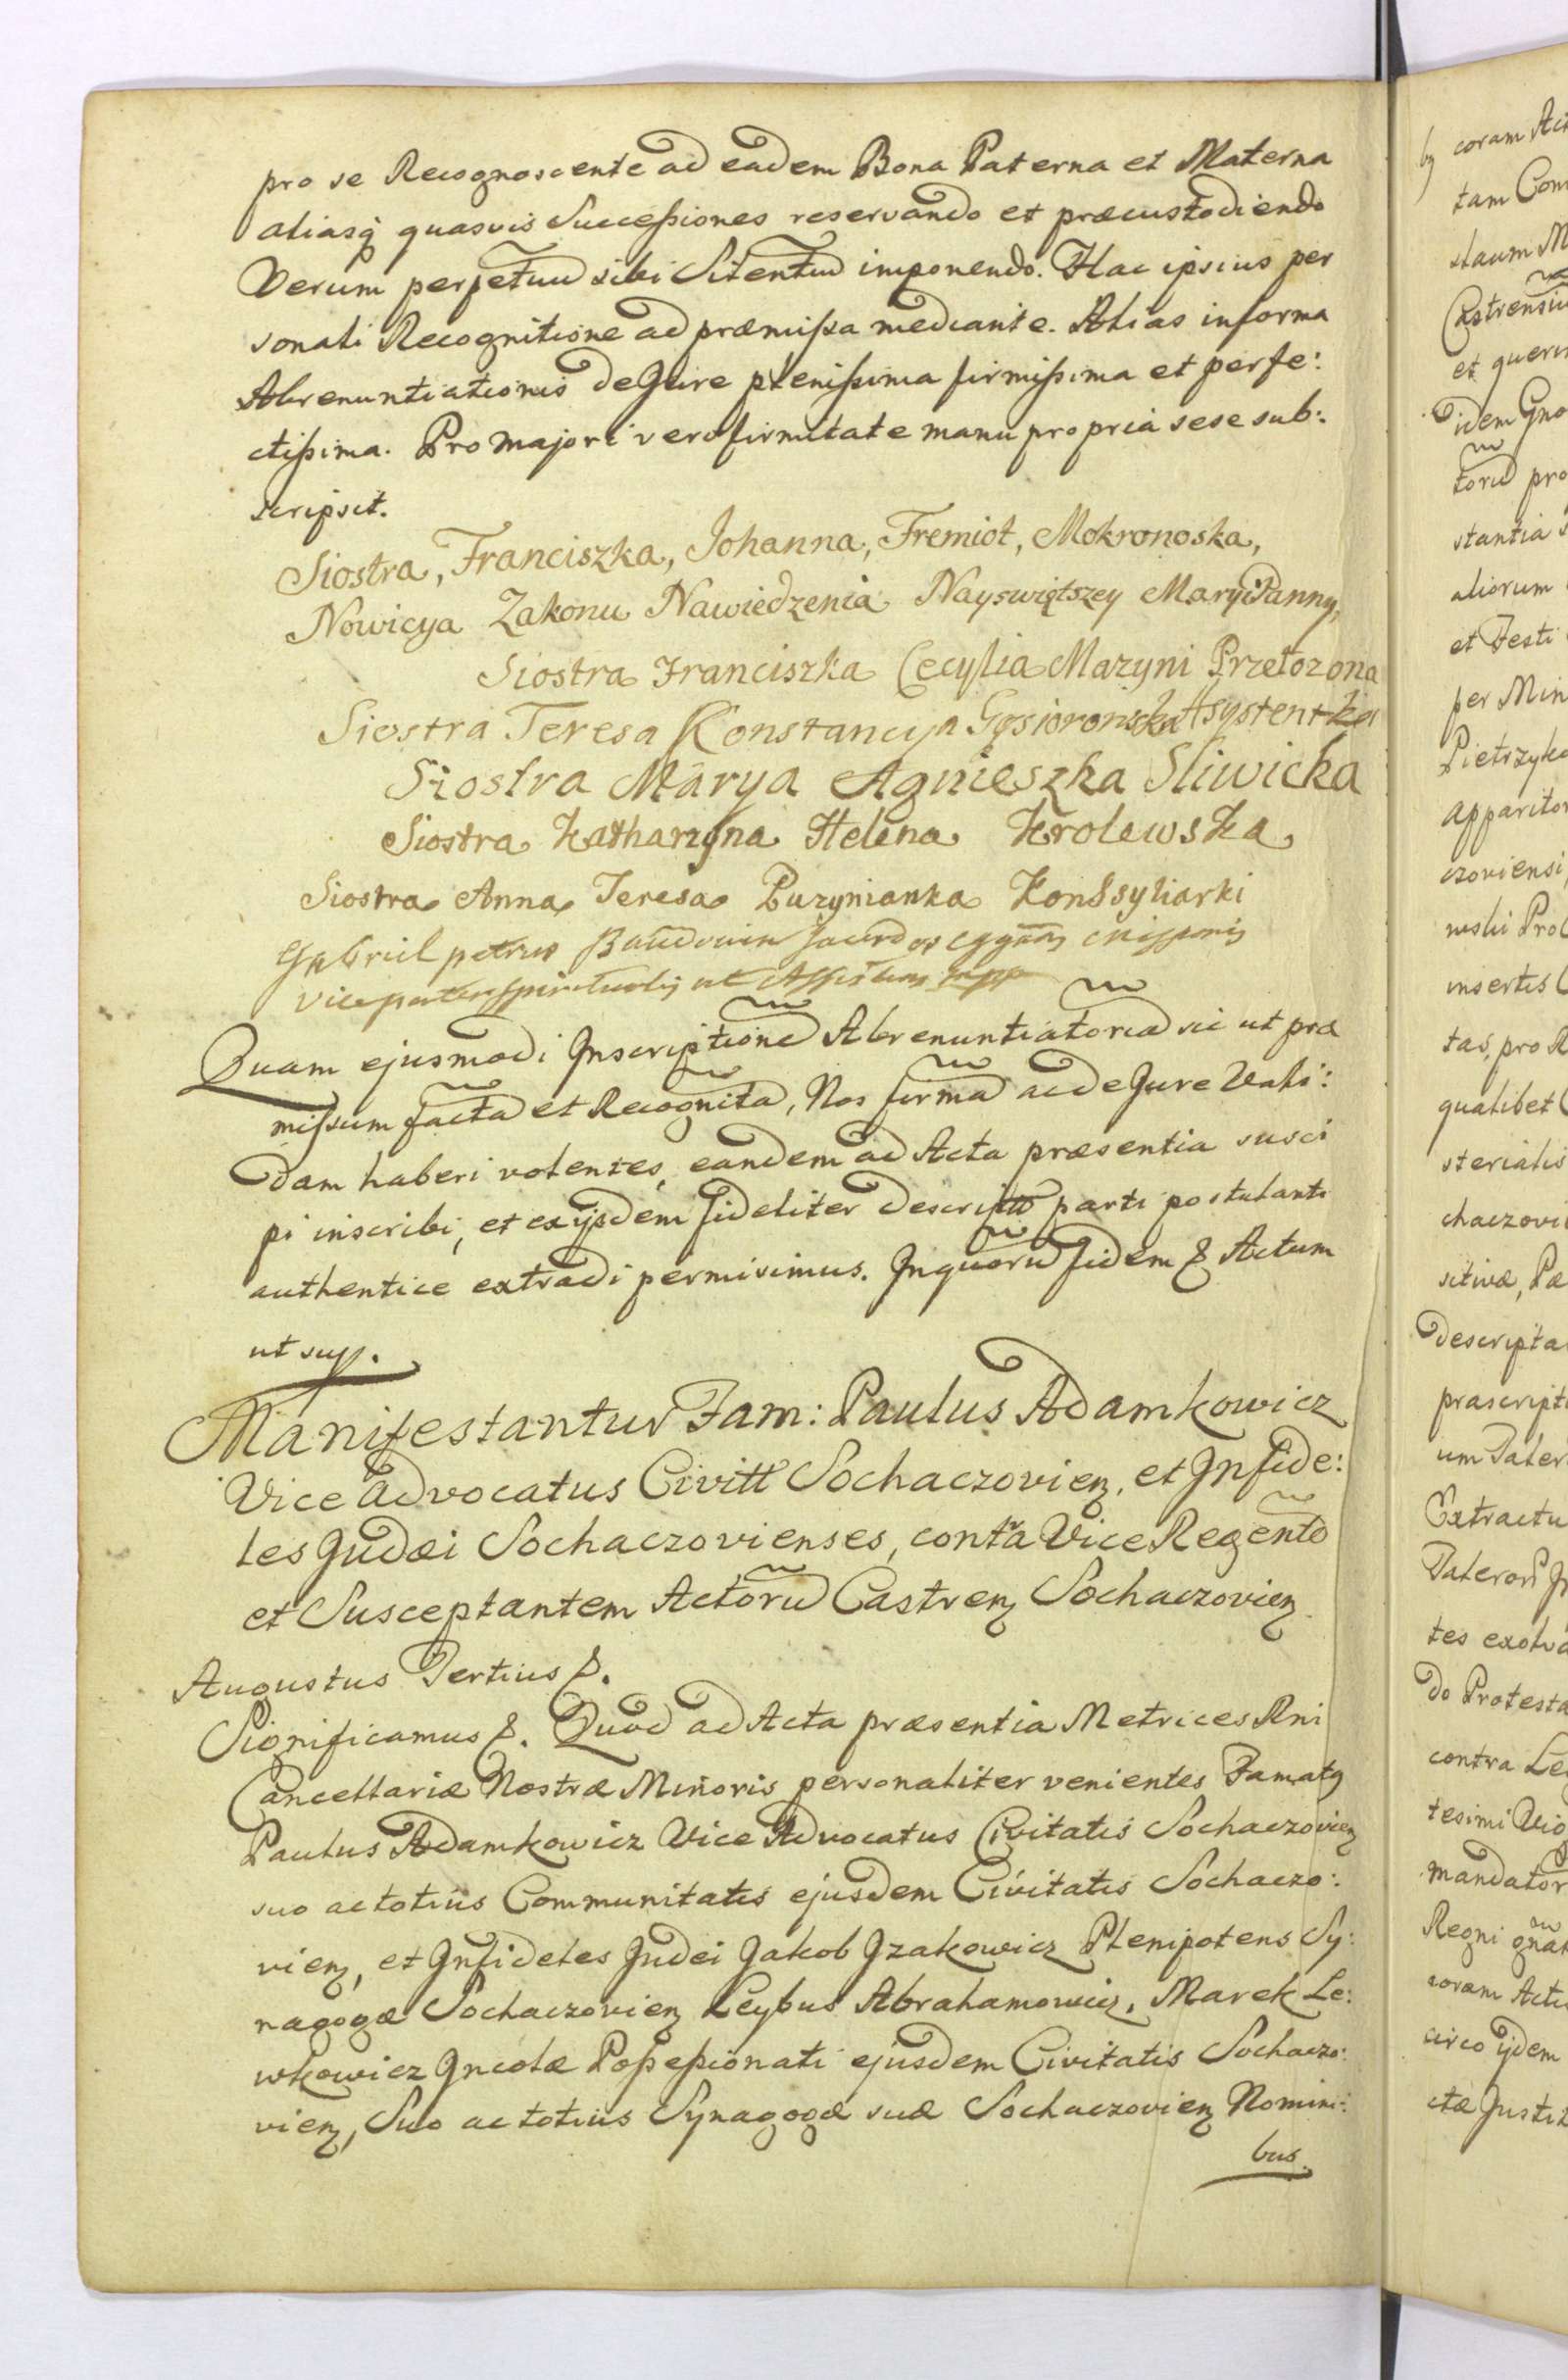 pro se Recognoscente ad eadem Bona Paterna et Materna
aliasq; quasvis Successiones reservando et præcustodiendo
Verum perpetuũ sibi Silentiũ imponendo. Hac ipsius per
sonali Recognitione ad præmissa mediante. Alias in forma
Abrenuntiationis de Jure plenissima firmissima et perfe:
ctissima. Pro majori vero firmitate manu propria sese sub:
scripsit.
Siostra, Franciszka, Johanna, Fremiot, Mokronoska,
Nowicya Zakonu Nawiedzenia Nayswiętszey Maryi Panny,
Siostra Franciszka Cecylia Mazyni Przełozona
Siostra Teresa Konstancya Gąsiorowska Asystentka
Siostra Marya Agnieszka Sliwicka
Siostra Katharzyna Helena Krolewska
Siostra Anna Teresa Puzynianka Konssyliarki
Gabriel petrus Baudouin Sacerdos Cggñis Missionis
Vice pater spiritualis ut Assistens mpp
Quam ejusmodi Inscriptionẽ Abrenuntiatoriã sic ut præ
missum factã et Recognitã, Nos firmã ac de Jure Vali:
dam haberi volentes, eandem ad Acta præsentia susci
pi inscribi, et ex ijsdem fideliter descriptã parti postulanti
authentice extradi permisimus. In quorũ fidem &. Actum
ut supp.
Manifestantur Fam: Paulus Adamkowicz
Vice Advocatus Civitt Sochaczovien, et Infide:
les Judæi Sochaczovienses, contra Vice Regentẽ
et Susceptantem Actorũ Castren Sochaczovien
Augustus Tertius &.
Significamus &. Quod ad Acta præsentia Metrices Rni
Cancellariæ Nostræ Minoris personaliter venientes Famatg
Paulus Adamkowicz Vice Advocatus Civitatis Sochaczovien
suo ac totius Communitatis ejusdem Civitatis Sochaczo:
vien, et Infideles Judei Jakob Jzakowicz Plenipotens Sy:
nagogæ Sochaczovien Leybus Abrahamowicz, Marek Le:
wkowicz Incolæ Possessionati ejusdem Civitatis Sochaczo:
vien, Suo ac totius Synagogæ suæ Sochaczovien Nomini:
bus.
coram
tam
et
Idem
torũ pro
stantia
aliorum
et Testi
per Min
apparitor
czoviensi,
insertis
tas, pro
qualibet
sterialis
sitivæ,
descripta
um Pater
Extractu
do Protesta
contra Le
mandator
Regni
coram Actis
circo ijdem
ctæ Justit